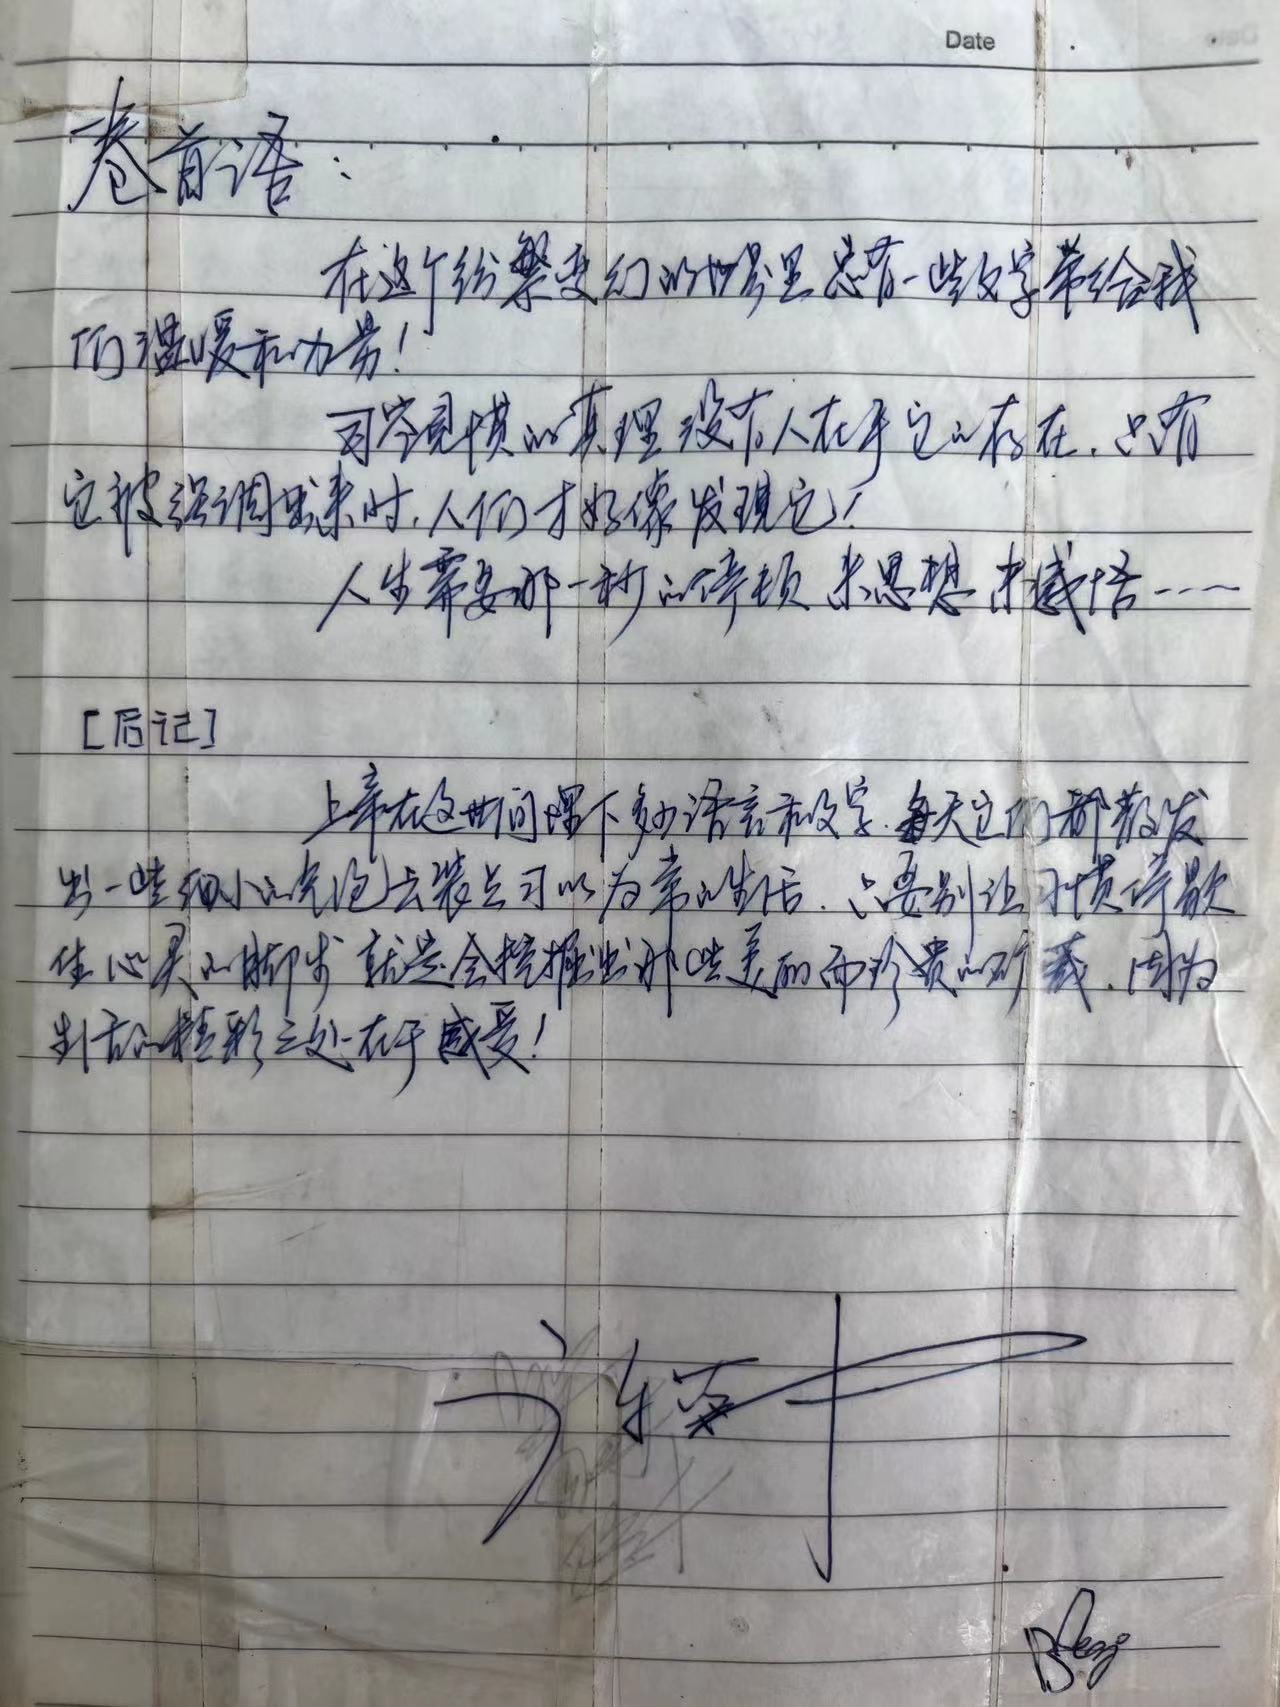 Date
卷首语:
在这个纷繁变幻的世界里总有一些文字带给我
们温暖和力量!
司空见惯的真理没有人在乎它的存在.只有
它被强调出来时.人们才好像发现它!
人生需要那一秒的停顿来思想来感悟-----
[后记]
上帝在这世间埋下多少语言和文字.每天它们都散发
出一些细小的光泡去装点习以为常的生活.只要别让习惯停歇
住心灵的脚步就是会挖掘出那些美丽而珍贵的矿藏.因为
生活的精彩之处在于感受!